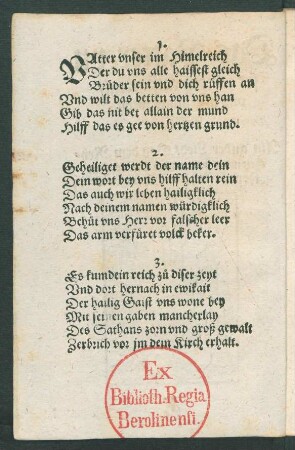 1.
VAtter vnser im Himelreich
Der du vns alle haissest gleich
Brüder sein vnd dich rüffen an
Vnd wilt das betten von vns han
Gib das nit bet allain der mund
Hilff das es gee von hertzen grund.
2.
Geheiliget werdt der name dein
Dein wort bey vns hilff halten rein
Das auch wir leben hailigklich
Nach deinem namen würdigklich
Behüt vns Herr vor falscher leer
Das arm verfüret volck beker.
3.
Es kum dein reich zů diser zeyt
Vnd dort hernach in ewikait
Der hailig Gaist vns wone bey
Mit seinen gaben mancherlay
Des Sathans zorn vnd groß gewalt
Zerbrich vor jm dem Kirch erhalt.
Ex
Biblioth. Regia
Berolinensi.